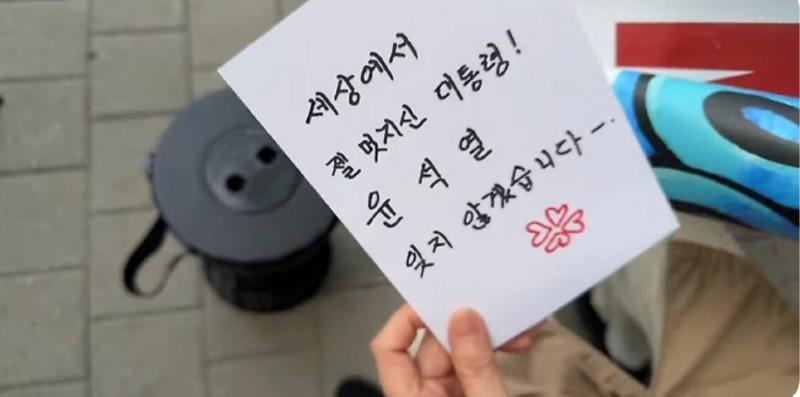 세상에서
젤 멋지신 대통령!
윤 석 열
잊지 않겠습니다~.